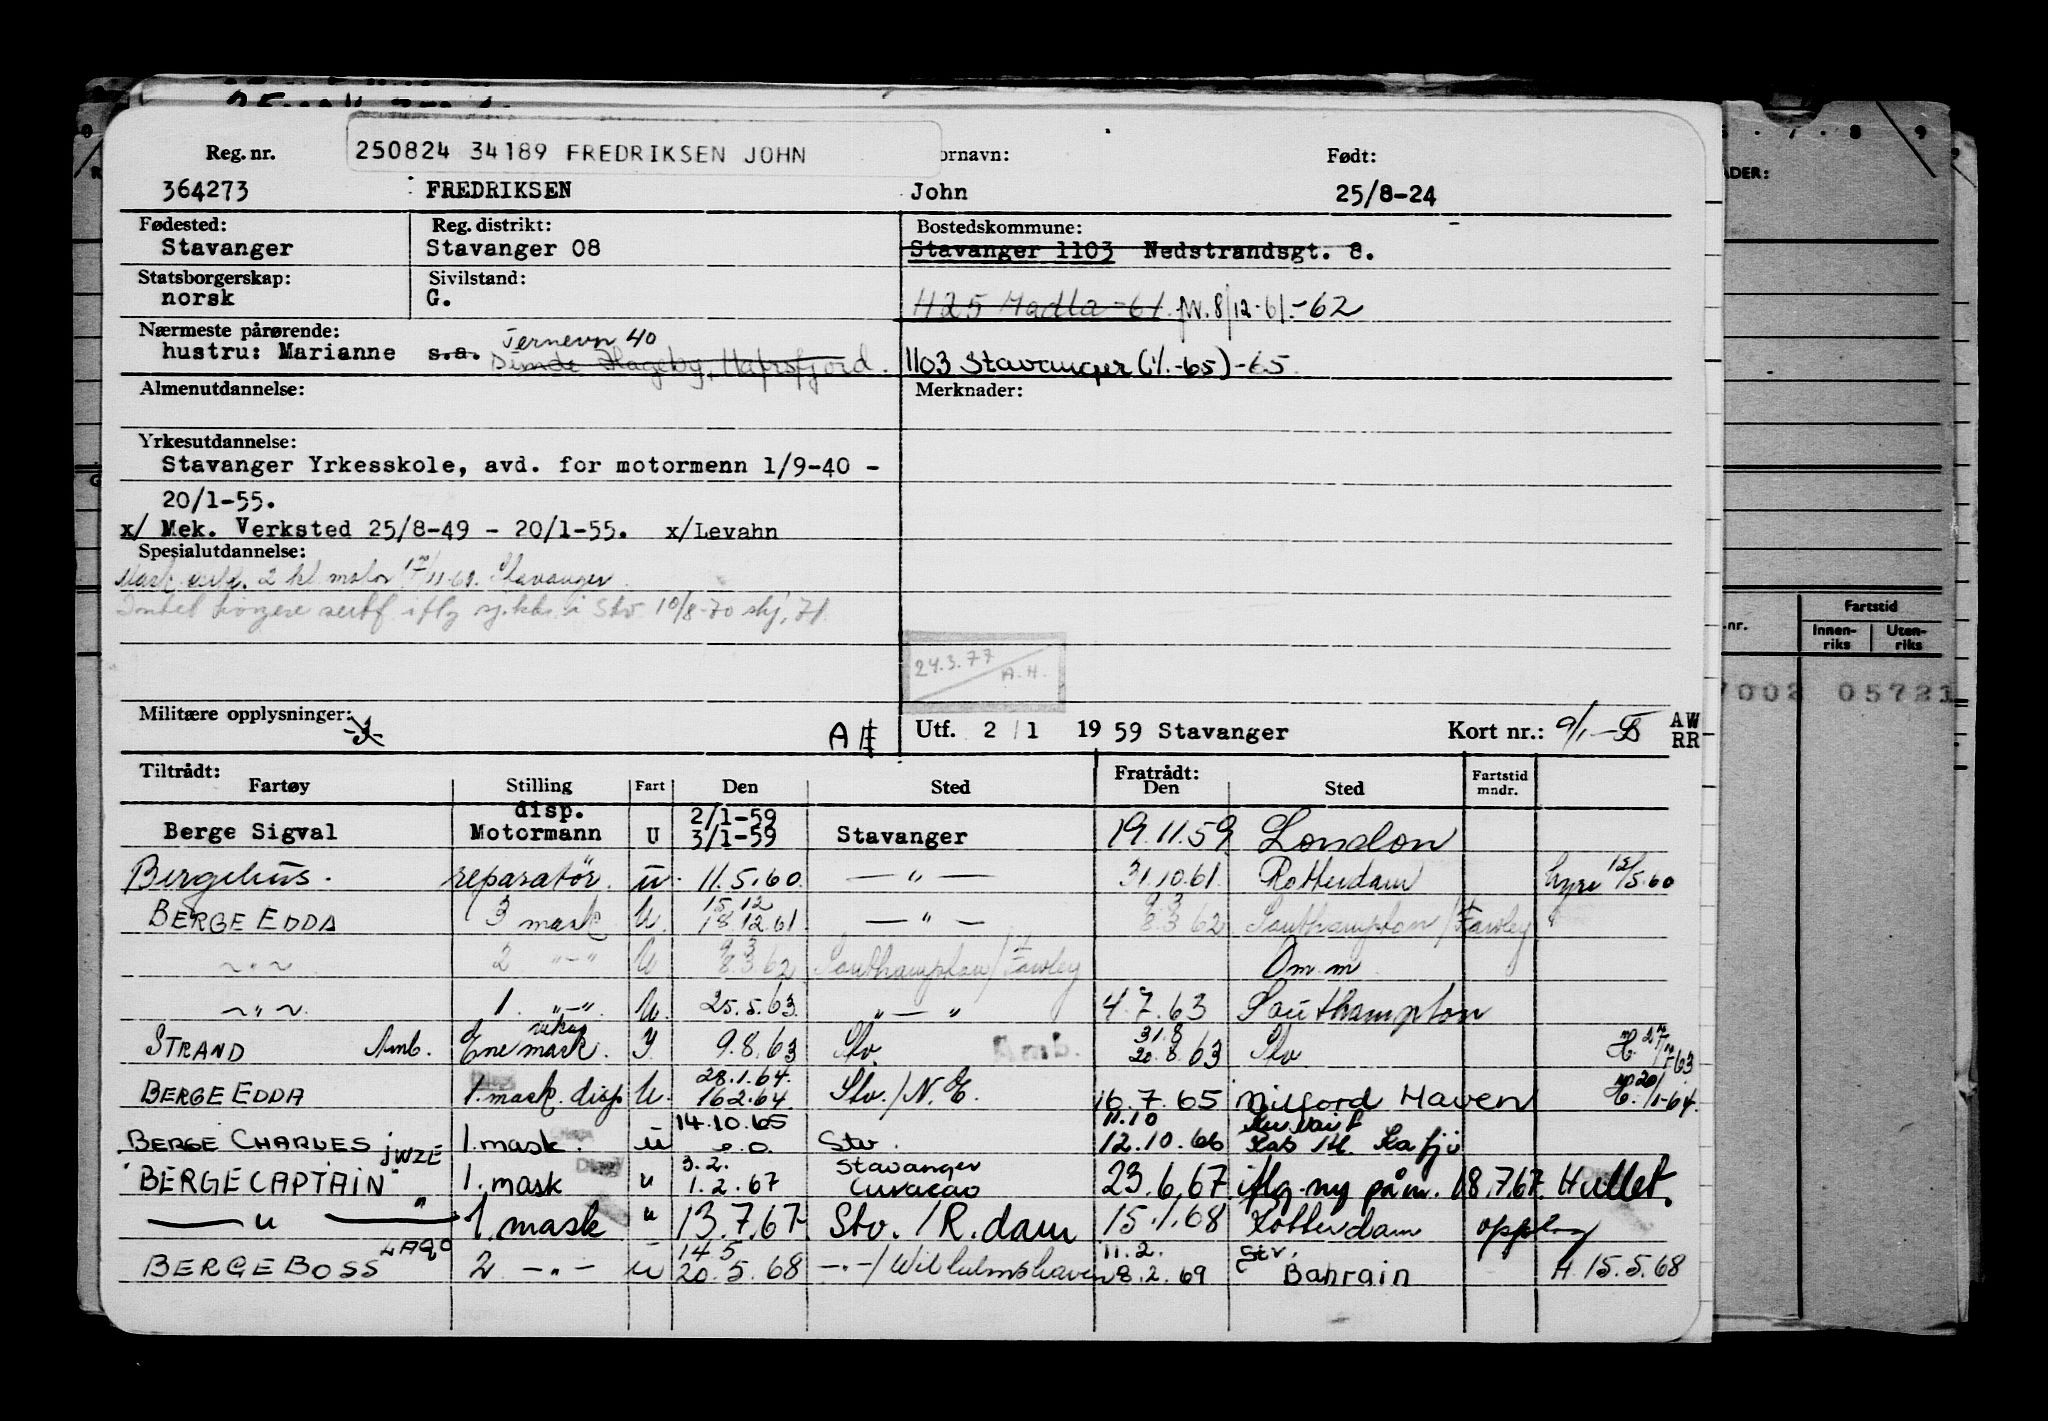 250824 34189 FREDRIKSEN JOHN
Reg. nr. ornavn: Født:
364273 FREDRIKSEN John 25/8-24
Fødested: Reg. distrikt: Bostedskommune:
Stavanger Stavanger 08 Stavanger 1103 Nedstrandsgt. 8.
Statsborgerskap: Sivilstand:
norsk G. 1125 Madla -61 fw. 8/12-61.-62
Nærmeste pårørende: Ternevn 40
hustru: Marianne s.a. Hageby, Hafrsfjord. 1103 Stavanger (1/1-65)-65
Almenutdannelse: Merknader:
Yrkesutdannelse:
Stavanger Yrkesskole, avd. for motormenn 1/9-40 -
20/1-55.
x/ Mek. Verksted 25/8-49 - 20/1-55. x/Levahn
Spesialutdannelse:
Mask. sertf. 2 kl motor Stavanger
høyere sertf. iflg Stv 10/8-70
24.3.77
A.H.
Militære opplysninger: -3- A Utf. 2/1 1959 Stavanger Kort nr.: 9/1- AW
RR
Tiltrådt: Fratrådt: Fartstid
Fartøy Stilling Fart Den Sted Den Sted mndr.
disp. 2/1-59
Berge Sigval Motormann U 3/1-59 Stavanger 19.11.59 London
Bergehus. reparatør. u. 11.5.60 — " — 31.10.61 Rotterdam hyre 12/5.60
15.12 9.3
BERGE EDDA 3 mask U. 18.12.61 — " — 8.3.62 Southampton/Fawley
9.3
~ " ~ 2 "-" U 8.3.62 Southampton/Fawley Om.m
~ " ~ 1. "-" U. 25.5.63 " — " 4.7.63 Southampton
vikar 31.8
STRAND Amb. Ene mask. I. 9.8.63 Stv Amb. 20.8.63 Stv
28.1.64.
BERGE EDDA 1. mask. disp U. 16.2.64 Stv./N.E. 16.7.65 Milford Haven
14.10.65 11.10 Kuwait
BERGE CHARLES jwzE 1. mask. u o.o. Stv. 12.10.66
3.2. Stavanger
"BERGE CAPTAIN" 1. mask u 1.2.67 Curacao 23.6.67 iflg. ny påm. 18.7.67. Hullet.
— " — 1. mask " 13.7.67 Stv./R.dam 15.1.68 Rotterdam opplag
LAQO 14.5 11.2. Stv.
BERGE BOSS 2 — " — u 20.5.68 — " —/Wilhelmshaven 8.2.69 Bahrain H. 15.5.68
ADER:
Fartstid
.nr. Innen-
riks Uten-
riks
7002 05721